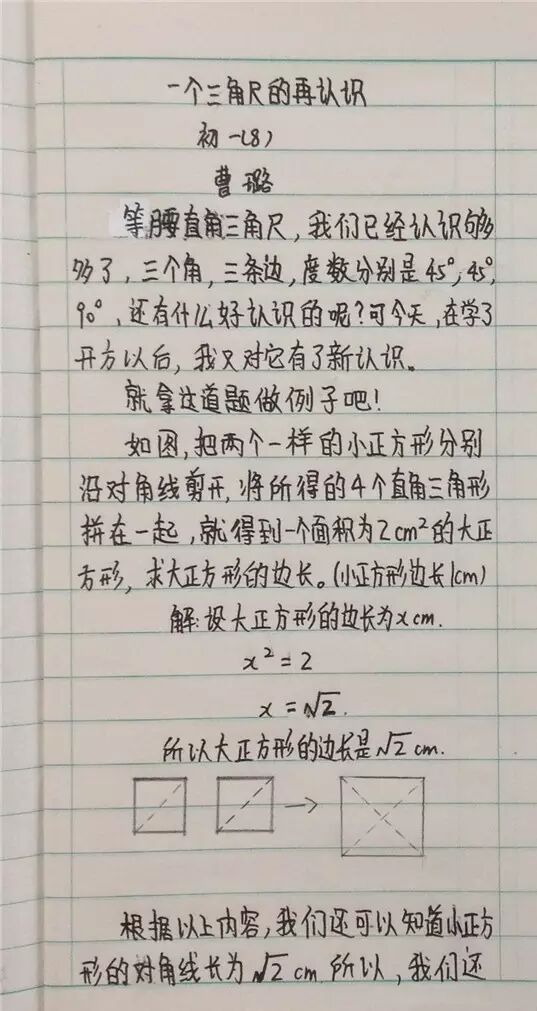 一个三角尺的再认识
初一(8)
曹璐
等腰直角三角尺，我们已经认识够
够了，三个角，三条边，度数分别是45°，45°，
90°，还有什么好认识的呢？可今天，在学了
开方以后，我又对它有了新认识。
就拿这道题做例子吧！
如图，把两个一样的小正方形分别
沿对角线剪开，将所得的4个直角三角形
拼在一起，就得到一个面积为2cm²的大正
方形，求大正方形的边长。(小正方形边长1cm)
解：设大正方形的边长为xcm.
x²=2
x=√2.
所以大正方形的边长是√2cm.
根据以上内容，我们还可以知道小正方
形的对角线长为√2cm.所以，我们还